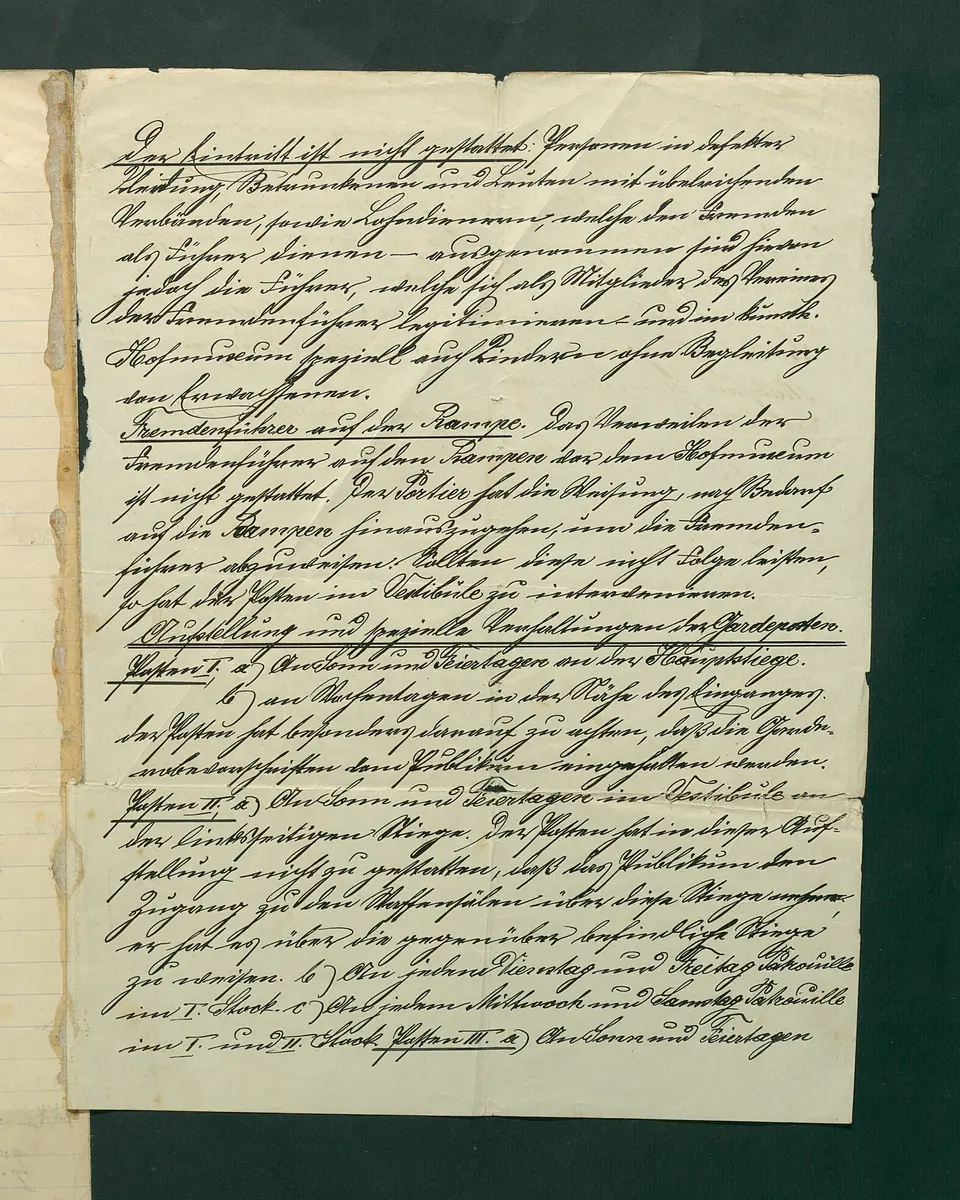 Der Eintritt ist nicht gestattet: Personen in defekter
Kleidung, Betrunkenen und Leuten mit übelriechenden
Verbänden, sowie Lohndienern, welche den Fremden
als Führer dienen — ausgenommen sind hievon
jedoch die Führer, welche sich als Mitglieder des Vereines
der Fremdenführer legitimieren – und im kunsth.
Hofmuseum speziell auch Kindern ohne Begleitung
von Erwachsenen.
Fremdenführer auf der Rampe. Das Verweilen der
Fremdenführer auf den Rampen vor dem Hofmuseum
ist nicht gestattet. Der Portier hat die Weisung, nach Bedarf
auf die Rampen hinauszugehen, um die Fremden-
führer abzuweisen. Sollten diese nicht Folge leisten,
so hat der Posten im Vestibule zu intervenieren.
Aufstellung und spezielle Verhaltungen der Gardeposten.
Posten I, a) An Sonn und Feiertagen an der Hauptstiege.
b) an Wochentagen in der Nähe des Einganges.
der Posten hat besonders darauf zu achten, daß die Garde-
robevorschriften vom Publikum eingehalten werden.
Posten II, a) An Sonn und Feiertagen im Vestibule an
der linksseitigen Stiege. Der Posten hat in dieser Auf-
stellung nicht zu gestatten, daß das Publikum den
Zugang zu den Waffensälen über diese Stiege nehme,
er hat es über die gegenüber befindliche Stiege
zu weisen. b) An jedem Dienstag und Freitag Patrouille
im I. Stock. c) An jedem Mittwoch und Samstag Patrouille
im I. und II. Stock. Posten III. a) An Sonn und Feiertagen